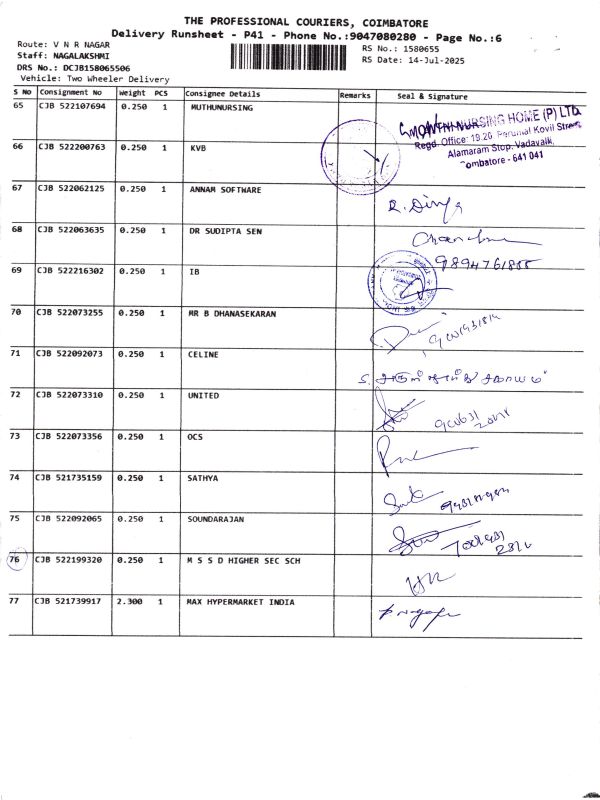 THE PROFESSIONAL COURIERS, COIMBATORE
Delivery Runsheet - P41 - Phone No.:9047080280 - Page No.:6
Route: V N R NAGAR
RS No.: 1580655
Staff: NAGALAKSHMI
RS Date: 14-Jul-2025
DRS No.: DCJB158065506
Vehicle: Two Wheeler Delivery
S No Consignment No Weight PCS Consignee Details Remarks Seal & Signature
65 CJB 522107694 0.250 1 MUTHUNURSING
NURSING HOME (P) LTD.
Regd. Office: 19.20, Perumal Kovil Street
Alamaram Stop, Vadavalli,
ombatore - 641 041
66 CJB 522200763 0.250 1 KVB
67 CJB 522062125 0.250 1 ANNAM SOFTWARE
R. Divya
68 CJB 522063635 0.250 1 DR SUDIPTA SEN
69 CJB 522216302 0.250 1 IB
70 CJB 522073255 0.250 1 MR B DHANASEKARAN
71 CJB 522092073 0.250 1 CELINE
72 CJB 522073310 0.250 1 UNITED
73 CJB 522073356 0.250 1 OCS
74 CJB 521735159 0.250 1 SATHYA
75 CJB 522092065 0.250 1 SOUNDARAJAN
76 CJB 522199320 0.250 1 M S S D HIGHER SEC SCH
77 CJB 521739917 2.300 1 MAX HYPERMARKET INDIA